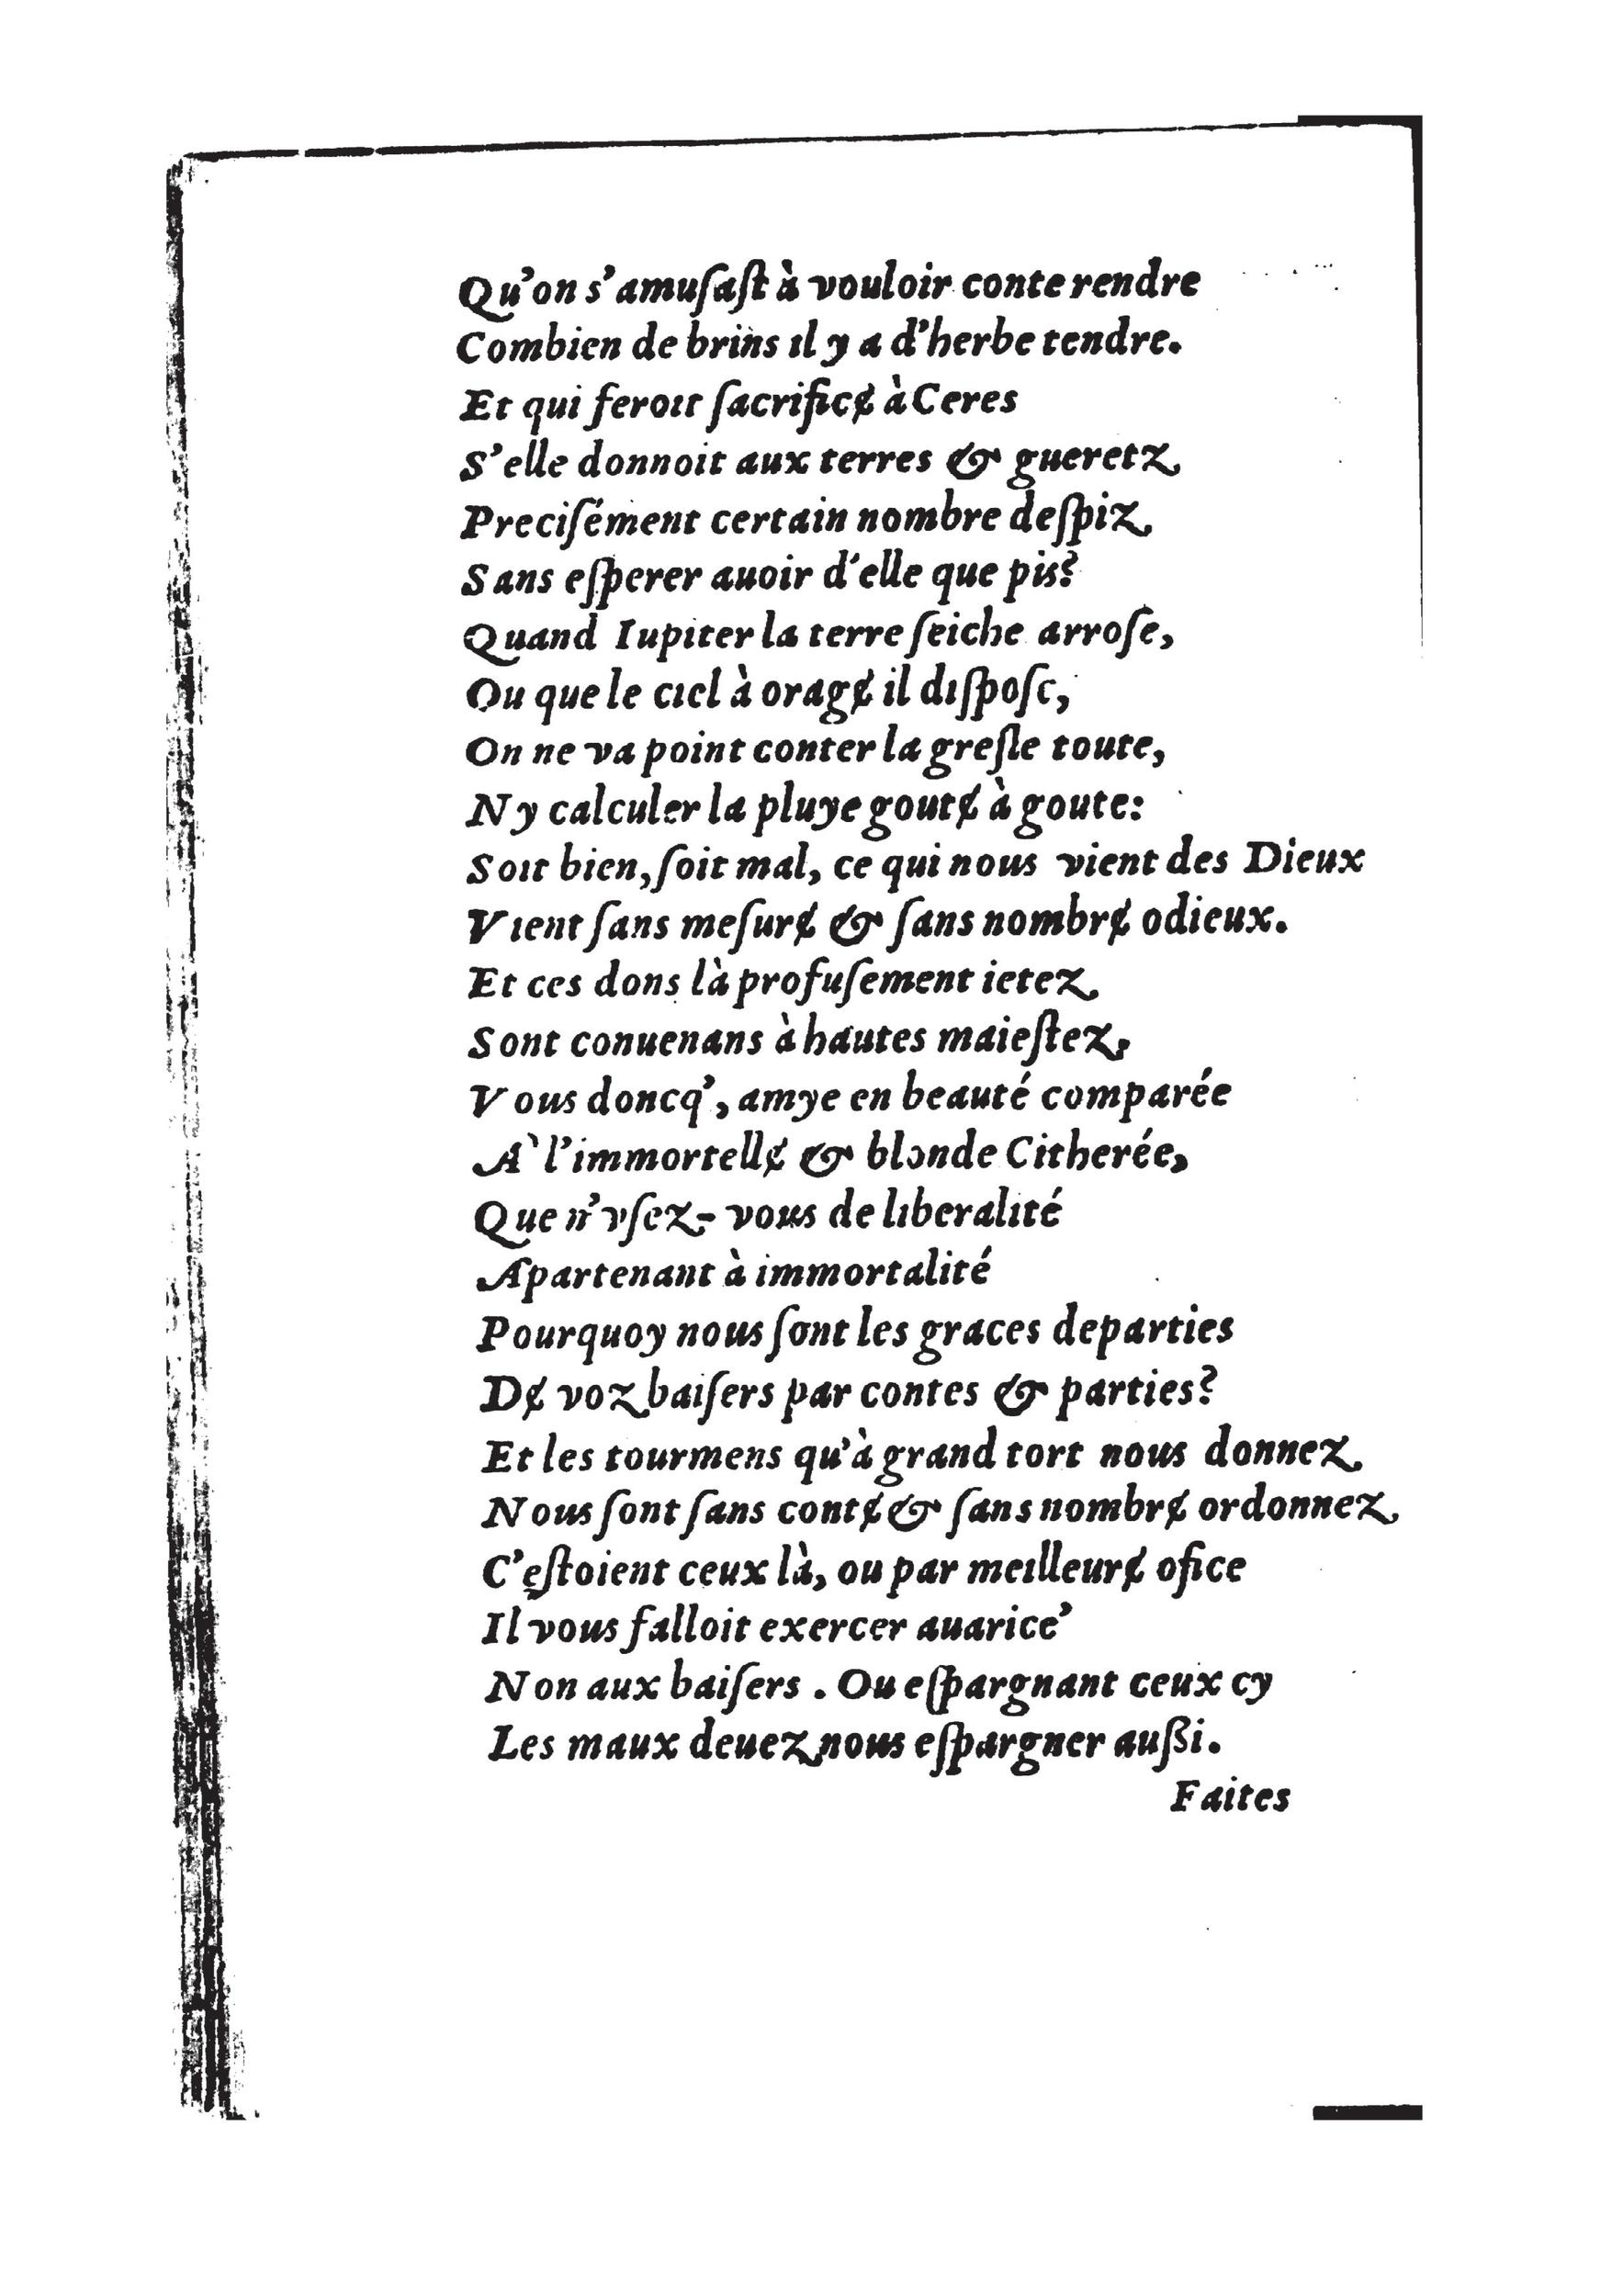 Qu’on s’amuſaſt à vouloir conte rendre
Combien de brins il y a d’herbe tendre.
Et qui feroit ſacrificɇ à Ceres
S’elle donnoit aux terres & gueretz
Preciſément certain nombre deſpiz
Sans eſperer auoir d’elle que pis?
Quand Iupiter la terre ſeiche arroſe,
Ou que le ciel à oragɇ il diſpoſe,
On ne va point conter la greſle toute,
Ny calculer la pluye goutɇ à goute:
Soit bien, ſoit mal, ce qui nous vient des Dieux
Vient ſans meſurɇ & ſans nombrɇ odieux.
Et ces dons là profuſement ietez
Sont conuenans à hautes maieſtez,
Vous doncq’, amye en beauté comparée
A` l’immortellɇ & blonde Citherée,
Que n’vſez-vous de liberalité
Apartenant à immortalité
Pourquoy nous ſont les graces departies
Dɇ voz baiſers par contes & parties?
Et les tourmens qu’à grand tort nous donnez
Nous ſont ſans contɇ & ſans nombrɇ ordonnez
C’eſtoient ceux là, ou par meilleurɇ ofice
Il vous falloit exercer auarice’
Non aux baiſers. Ou eſpargnant ceux cy
Les maux deuez nous eſpargner außi.
Faites